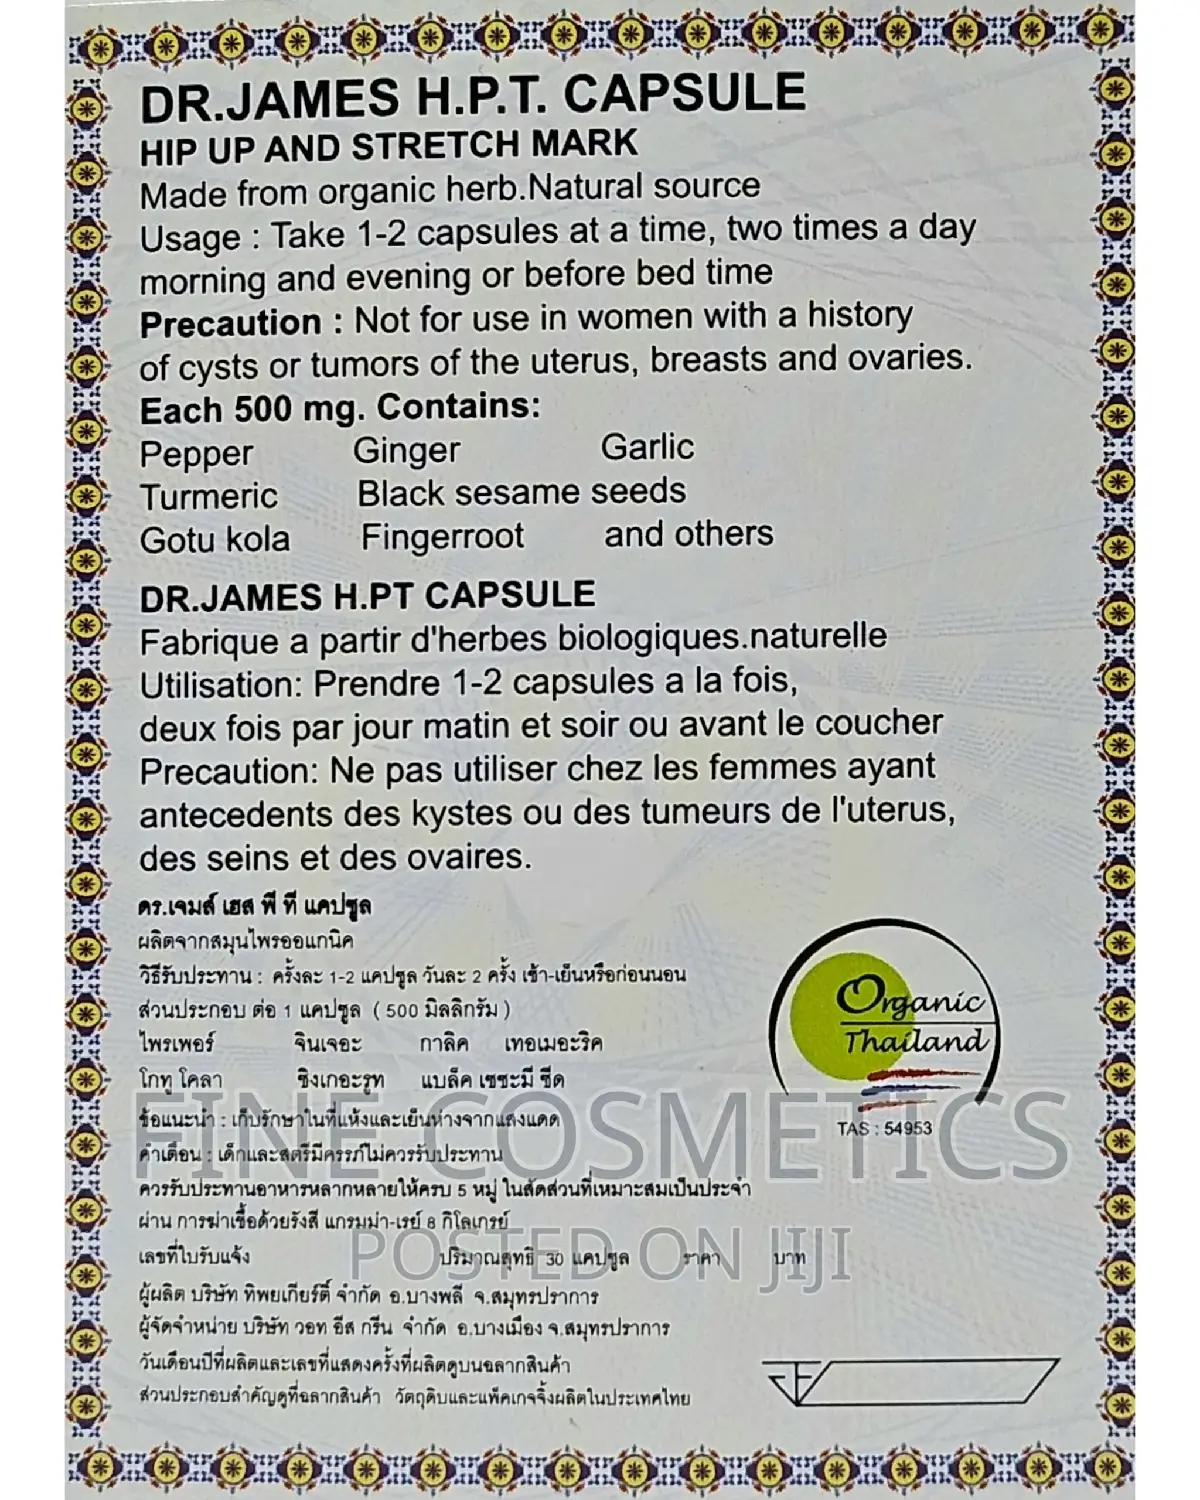 DR.JAMES H.P.T. CAPSULE
HIP UP AND STRETCH MARK
Made from organic herb.Natural source
Usage : Take 1-2 capsules at a time, two times a day
morning and evening or before bed time
Precaution : Not for use in women with a history
of cysts or tumors of the uterus, breasts and ovaries.
Each 500 mg. Contains:
Pepper Ginger Garlic
Turmeric Black sesame seeds
Gotu kola Fingerroot and others
DR.JAMES H.PT CAPSULE
Fabrique a partir d'herbes biologiques.naturelle
Utilisation: Prendre 1-2 capsules a la fois,
deux fois par jour matin et soir ou avant le coucher
Precaution: Ne pas utiliser chez les femmes ayant
antecedents des kystes ou des tumeurs de l'uterus,
des seins et des ovaires.
ดร.เจมส์ เฮส พี ที แคปซูล
ผลิตจากสมุนไพรออแกนิค
วิธีรับประทาน : ครั้งละ 1-2 แคปซูล วันละ 2 ครั้ง เช้า-เย็นหรือก่อนนอน
ส่วนประกอบ ต่อ 1 แคปซูล ( 500 มิลลิกรัม )
ไพรเพอร์ จินเจอะ กาลิค เทอเมอะริค
โกทู โคลา ชิงเกอะรูท แบล็ค เซซะมี ซีด
ข้อแนะนำ : เก็บรักษาในที่แห้งและเย็นห่างจากแสงแดด
คำเตือน : เด็กและสตรีมีครรภ์ไม่ควรรับประทาน
ควรรับประทานอาหารหลากหลายให้ครบ 5 หมู่ ในสัดส่วนที่เหมาะสมเป็นประจำ
ผ่าน การฆ่าเชื้อด้วยรังสี แกรมม่า-เรย์ 8 กิโลเกรย์
เลขที่ใบรับแจ้ง ปริมาณสุทธิ 30 แคปซูล ราคา บาท
ผู้ผลิต บริษัท ทิพยเกียร์ติ์ จำกัด อ.บางพลี จ.สมุทรปราการ
ผู้จัดจำหน่าย บริษัท วอท อีส กรีน จำกัด อ.บางเมือง จ.สมุทรปราการ
วันเดือนปีที่ผลิตและเลขที่แสดงครั้งที่ผลิตดูบนฉลากสินค้า
ส่วนประกอบสำคัญดูที่ฉลากสินค้า วัตถุดิบและแพ็คเกจจิ้งผลิตในประเทศไทย
Organic
Thailand
TAS : 54953
FINE COSMETICS
POSTED ON JIJI